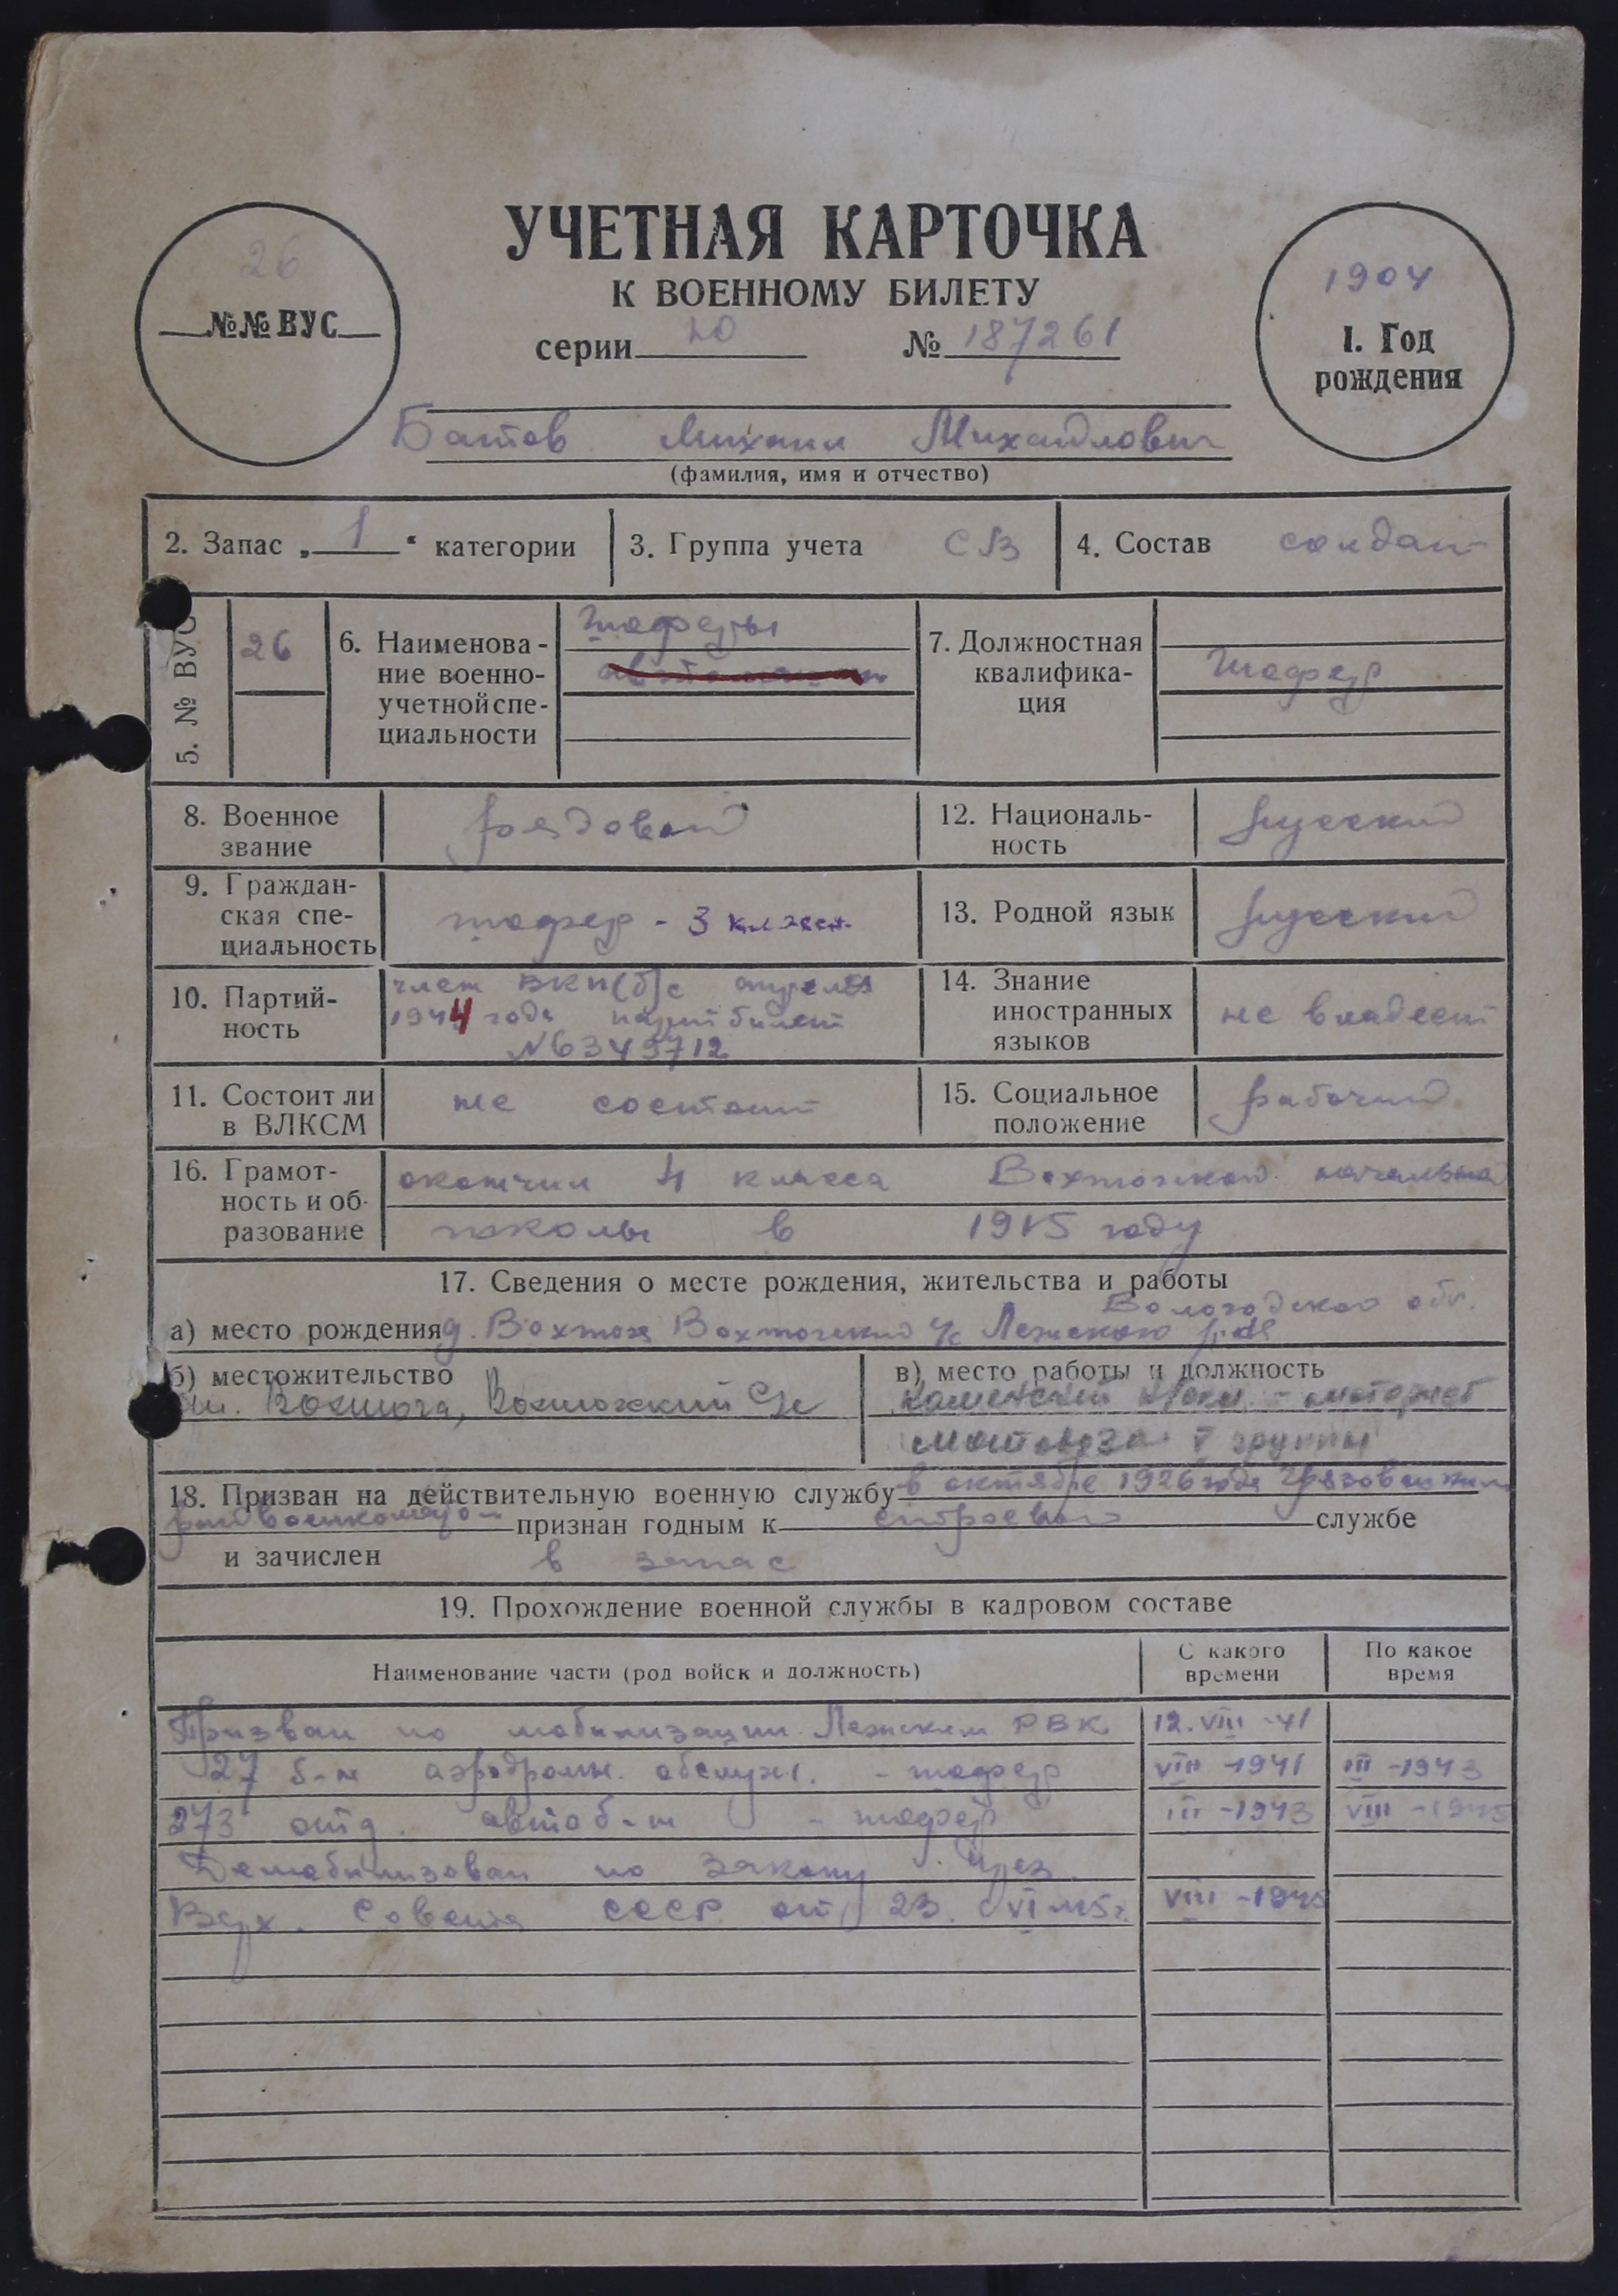 УЧЕТНАЯ КАРТОЧКА
К ВОЕННОМУ БИЛЕТУ
26
№№ ВУС
серии 20 № 187261
1904
1. Год
рождения
Батов Михаил Михайлович
(фамилия, имя и отчество)
2. Запас „ 1 “ категории
3. Группа учета СВ
4. Состав солдат
5. № ВУС
26
6. Наименова-
ние военно-
учетной спе-
циальности
шоферы
7. Должностная
квалифика-
ция
шофер
8. Военное
звание
рядовой
12. Националь-
ность
русский
9. Граждан-
ская спе-
циальность
шофер - 3 класса
13. Родной язык
русский
10. Партий-
ность
член ВКП(б) с апреля
1944 года партбилет
№ 6349712
14. Знание
иностранных
языков
не владеет
11. Состоит ли
в ВЛКСМ
не состоит
15. Социальное
положение
рабочий
16. Грамот-
ность и об-
разование
окончил 4 класса Вохтожской начальной
школы в 1915 году
17. Сведения о месте рождения, жительства и работы
Вологодской обл.
а) место рождения д. Вохтога Вохтожский с/с Лежского р-на
б) местожительство
ст. Вохтога, Вохтожский с/с
в) место работы и должность
Каменский - моторист
мотовоза V группы
18. Призван на действительную военную службу в октябре 1926 года Грязовецким
райвоенкоматом признан годным к строевой службе
и зачислен в запас
19. Прохождение военной службы в кадровом составе
Наименование части (род войск и должность)
С какого
времени
По какое
время
Призван по мобилизации Лежским РВК 12.VIII-41
27 б-н аэродромн. обслуж. - шофер VIII-1941 III-1943
273 отд. автоб-н - шофер III-1943 VIII-1945
Демобилизован по закону През.
Верх. Совета СССР от 23.VI.45г. VIII-1945